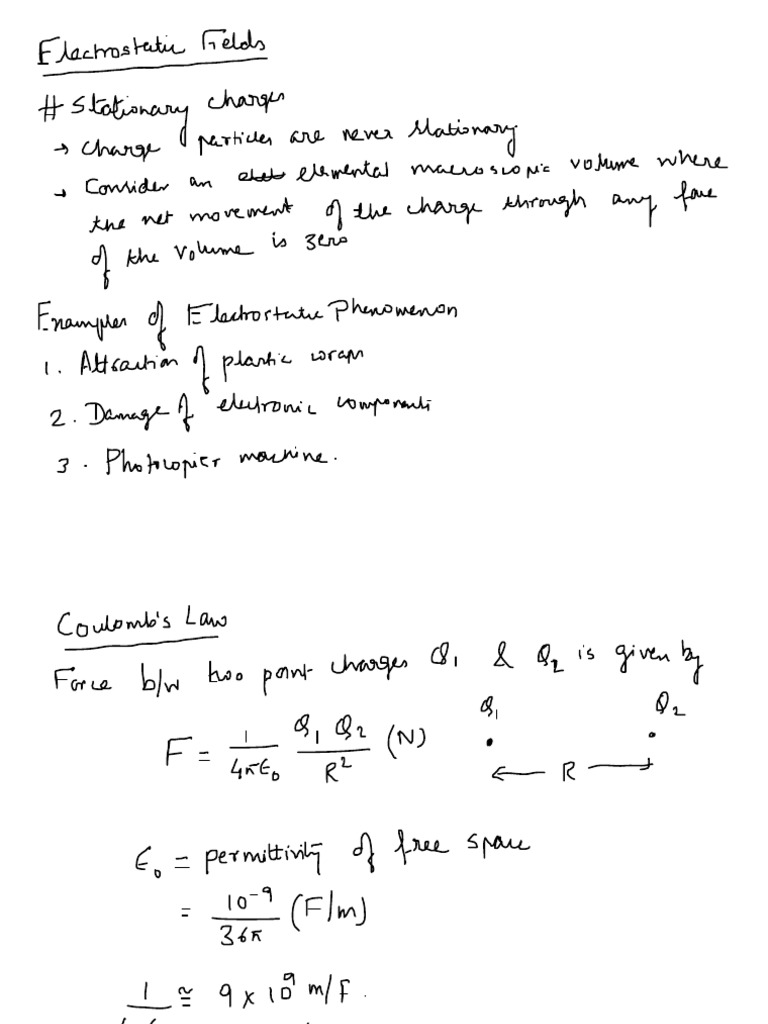 Electrostatic Fields
# Stationary charges
→ Charge particles are never stationary
→ Consider an elemental macroscopic volume where
the net movement of the charge through any face
of the volume is zero
Examples of Electrostatic Phenomenon
1. Attraction of plastic wraps
2. Damage of electronic components
3. Photocopier machine.
Coulomb's Law
Force b/w two point charges Q₁ & Q₂ is given by
Q₁ Q₂
F = 1/4πϵ₀ Q₁ Q₂/R² (N)
← R →
ϵ₀ = permittivity of free space
= 10⁻⁹/36π (F/m)
1 ≅ 9 x 10⁹ m/F.